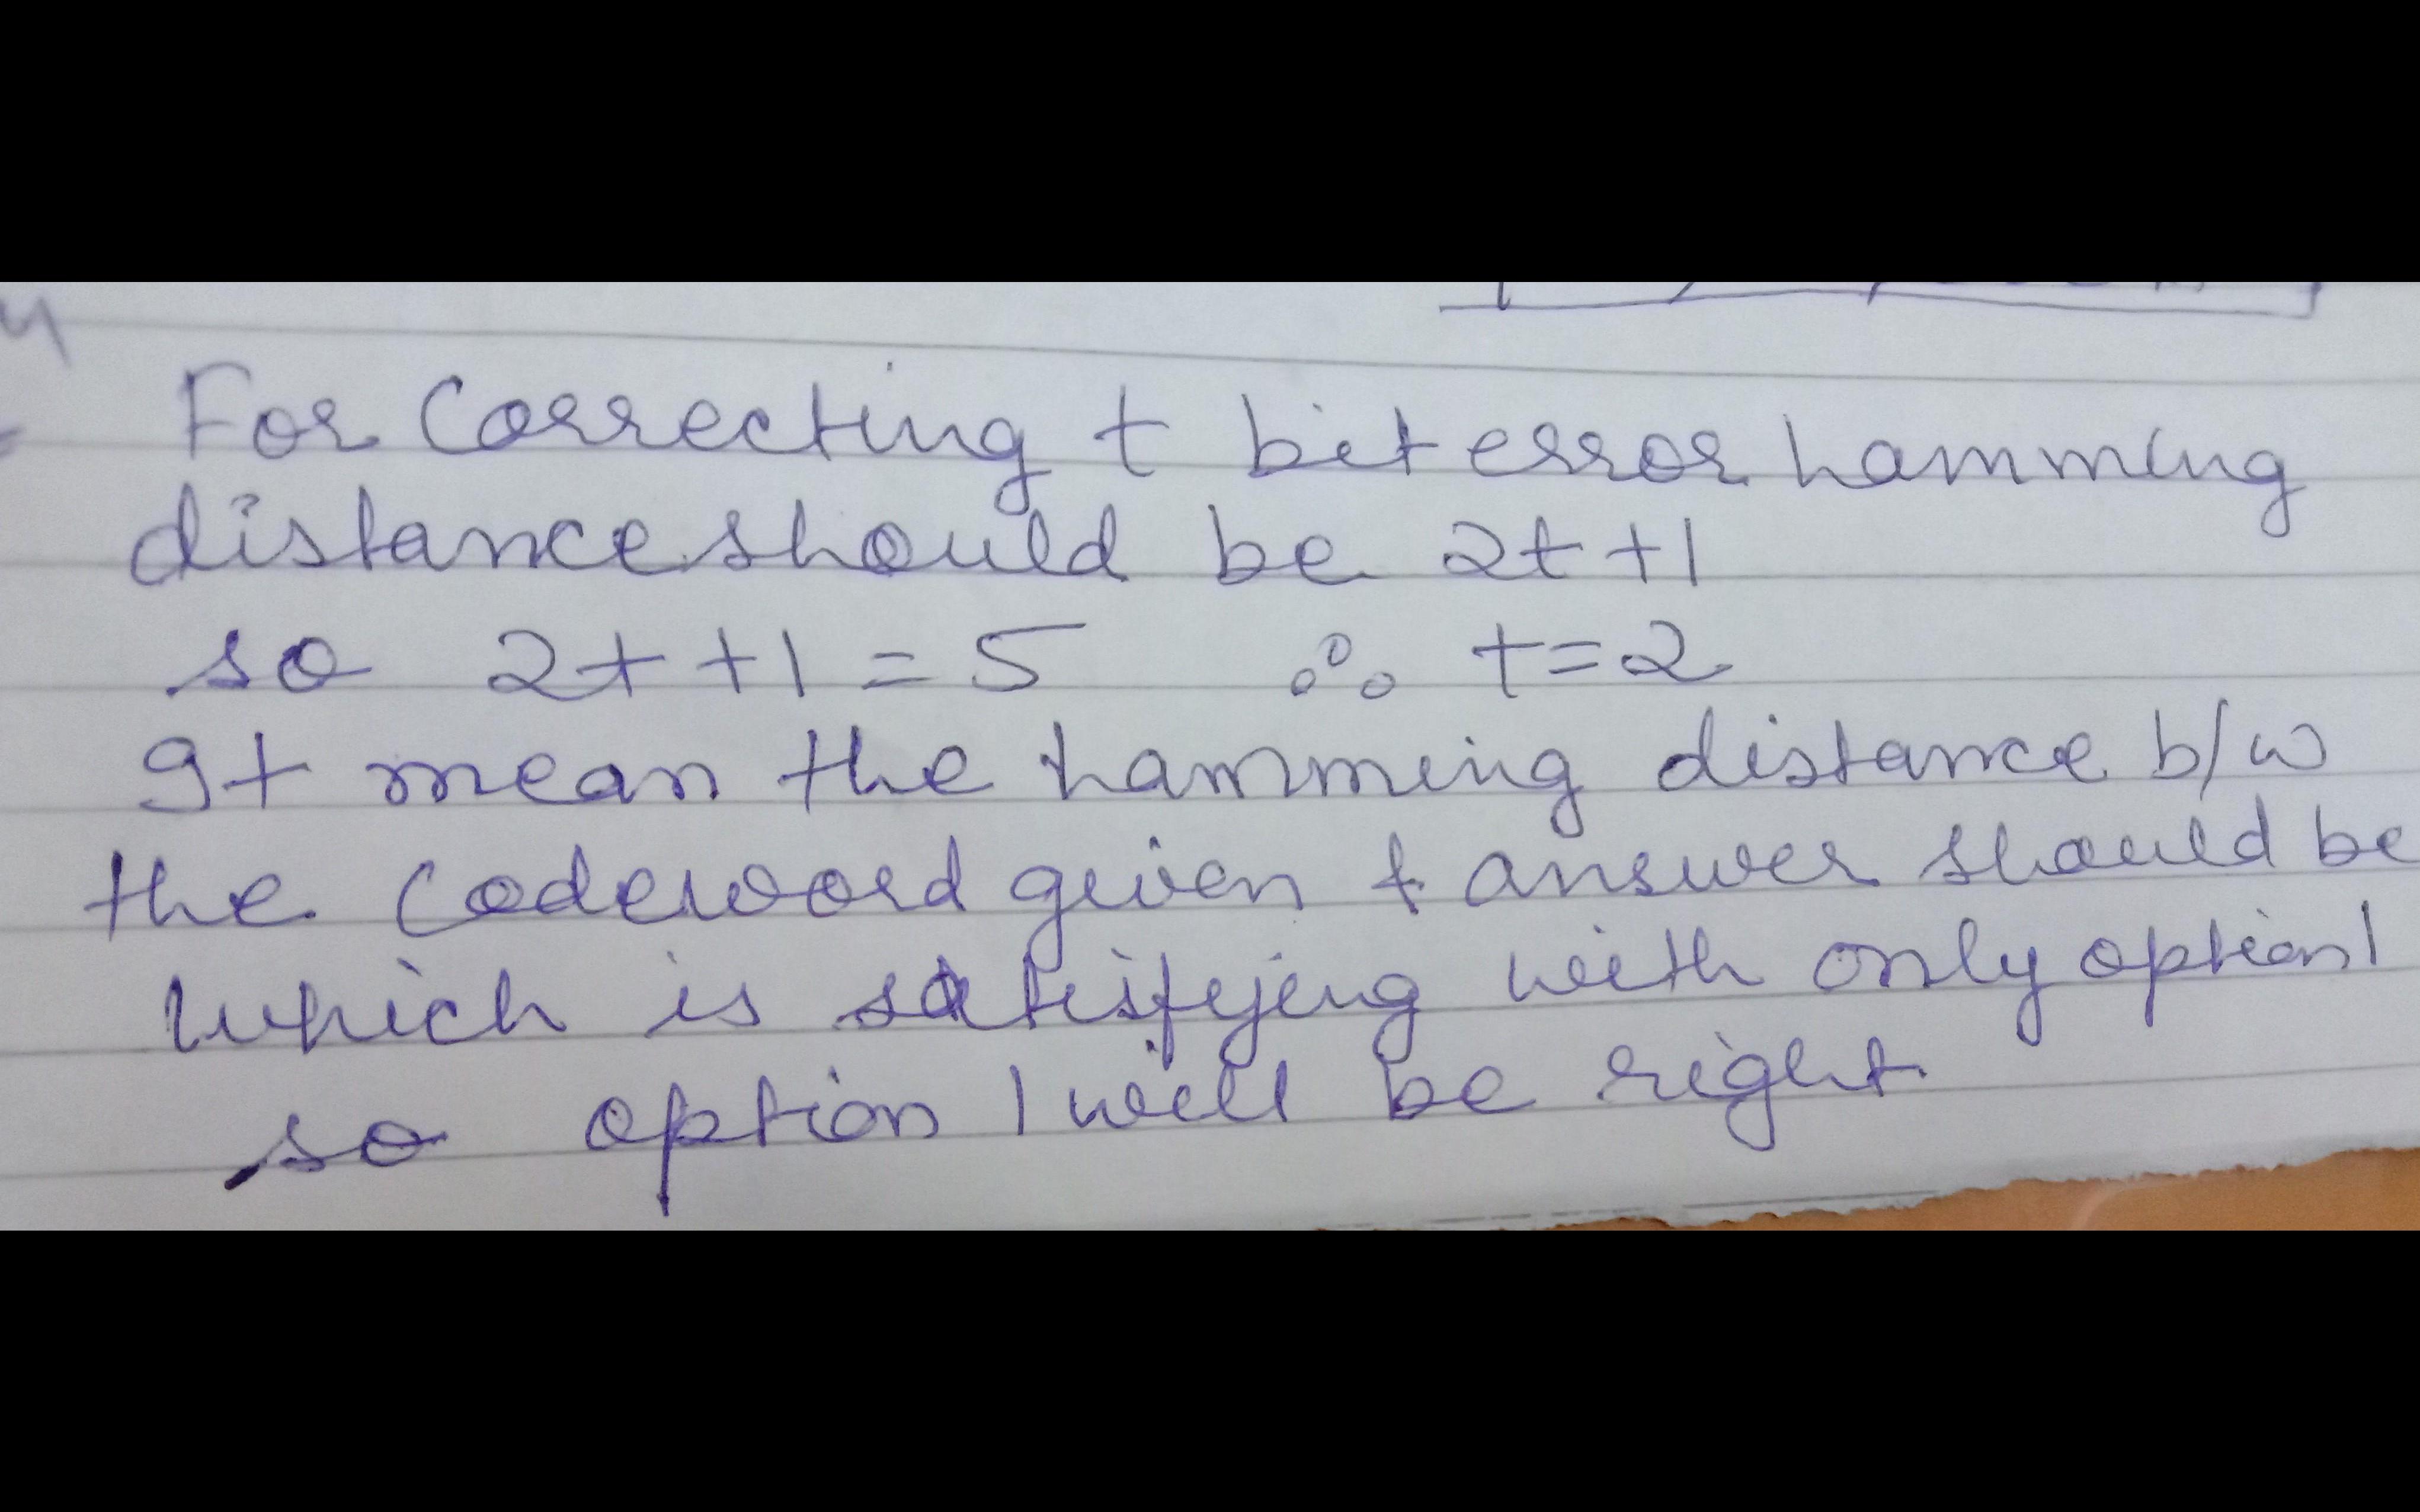 For Correcting t bit error hamming
distance should be 2t+1
so 2t+1=5 ∴ t=2
It mean the hamming distance b/w
the codeword given & answer should be
which is satisfying with only option 1
so option 1 will be right